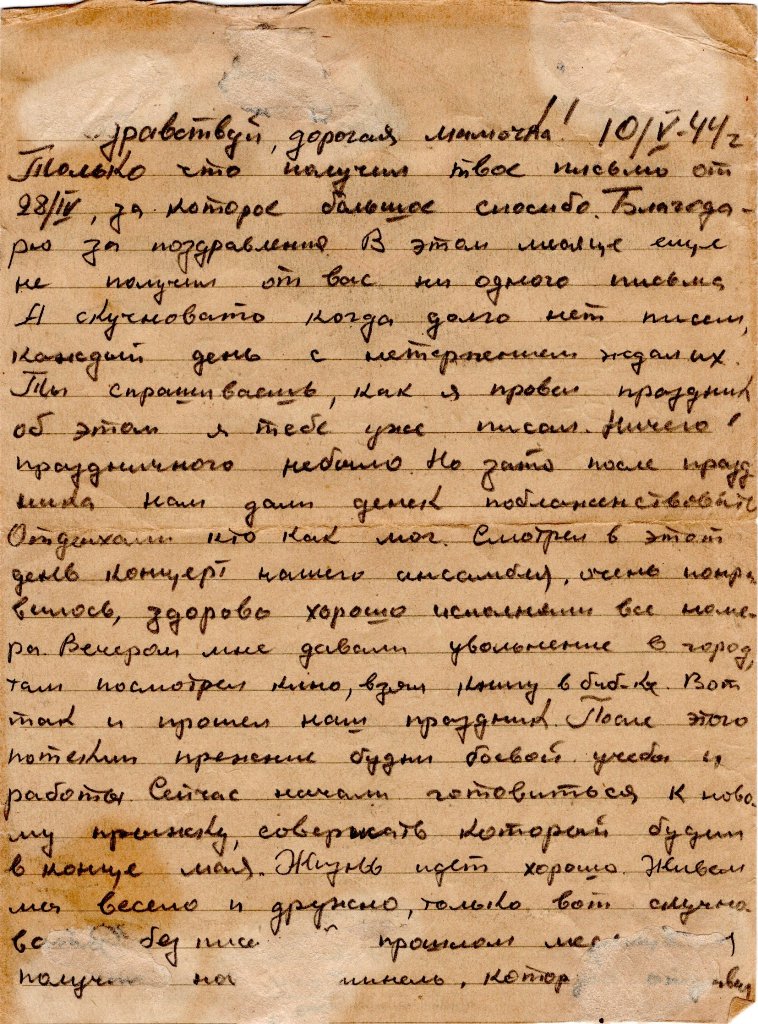 дравствуй, дорогая мамочка! 10/V-44 г
Только что получил твое письмо от
28/IV, за которое большое спасибо. Благода-
рю за поздравления В этом месяце еще
не получил от вас ни одного письма
А скучновато когда долго нет писем,
каждый день с нетерпением ждал их.
Ты спрашиваешь, как я провел праздник
об этом я тебе уже писал. Ничего
праздничного небыло. Но зато после празд
ника нам дали денек поблаженствовать
Отдыхали кто как мог. Смотрел в этот
день концерт нашего ансамбля, очень понра
вилось, здорово хорошо исполняли все номе-
ра. Вечером мне давали увольнение в город,
там посмотрел кино, взял книгу в биб-ке. Вот
так и прошел наш праздник. После этого
потекли прежние будни боевой учебы и
работы. Сейчас начали готовиться к ново-
му прыжку, совершать который будем
в конце мая. Жизнь идет хорошо. Живем
мы весело и дружно, только вот скучно
ва без писе й прошлом мес
получ на шинель, котор